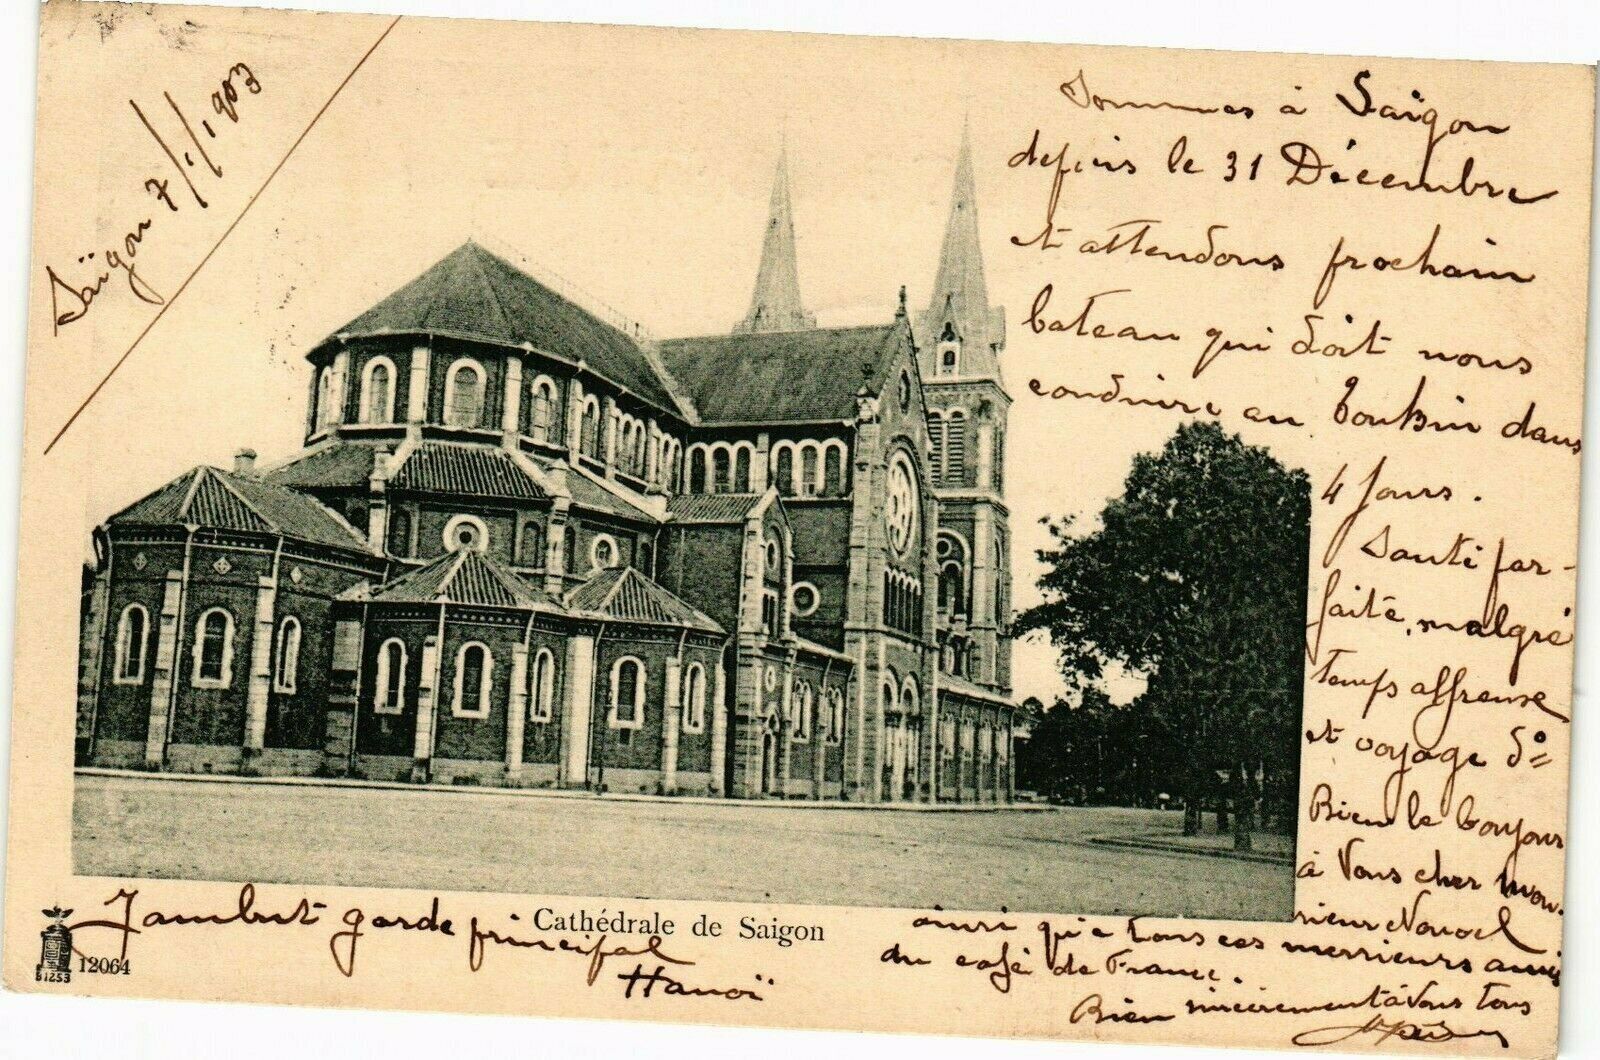 Saïgon 7/1/1903
Sommes à Saïgon
depuis le 31 Décembre
et attendons prochain
bateau qui doit nous
conduire au Tonkin dans
4 jours.
Santé par-
faite, malgré
temps affreuse
et voyage d°=
Bien le bonjour
à Vous cher mon-
sieur
ainsi que tous ces messieurs amis
du café de France.
Bien sincèrement à Vous tous
Jambut garde principal
Hanoï
Cathédrale de Saigon
12064
B1253